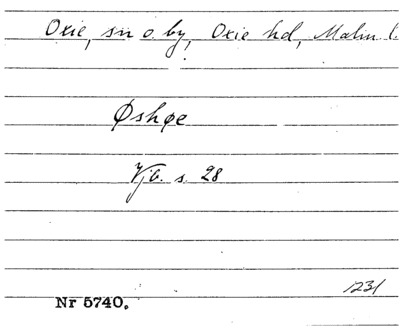 Oxie, sn o. by, Oxie hd, Malm l.
Øshøe
Vjb. s. 28
1231
Nr 5740.